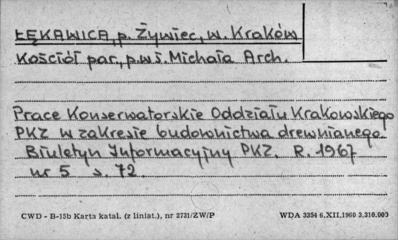 ŁĘKAWICA, p. Żywiec, w. Kraków
Kościół par., p.w.ś. Michała Arch.
Prace Konserwatorskie Oddziału Krakowskiego
PKZ w zakresie budownictwa drewnianego.
Biuletyn Informacyjny PKZ. R. 1967
nr 5 s. 72.
CWD - B-15b Karta katal. (z liniat.), nr 2731/ZW/P WDA 3354 6.XII.1960 3.310.000